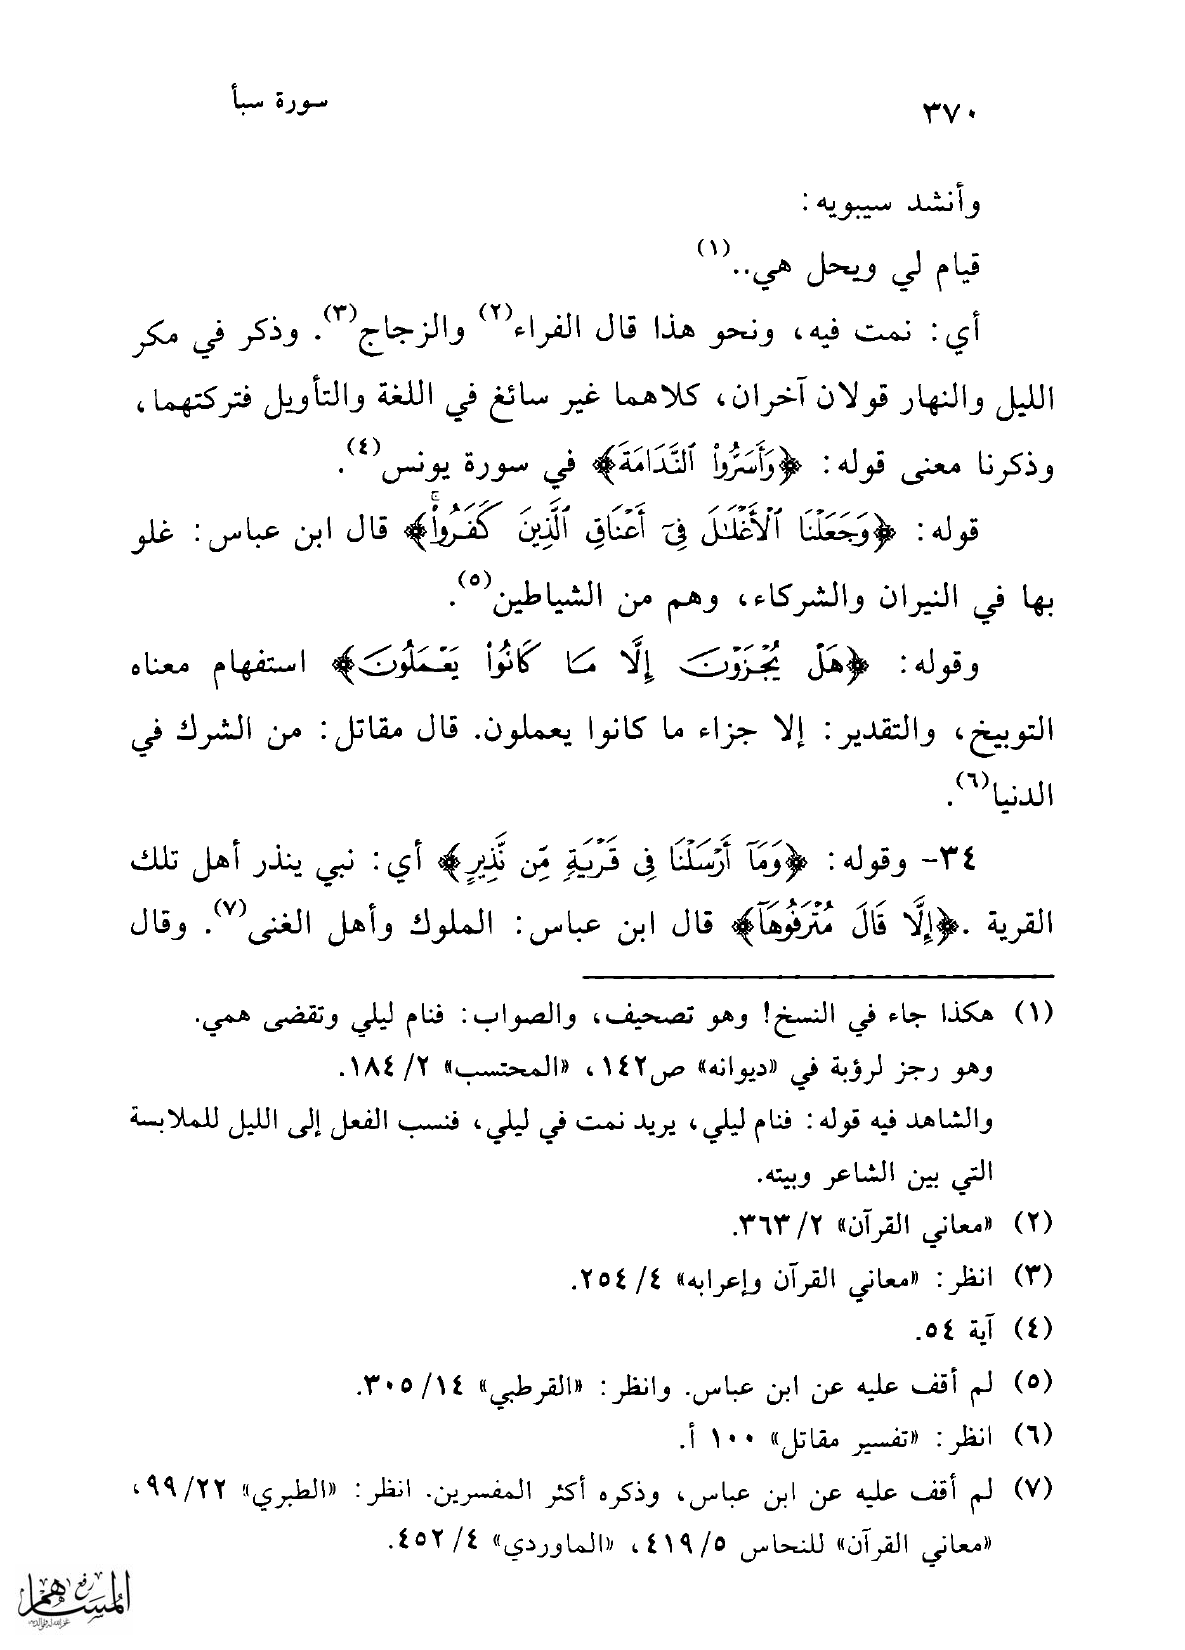 ٣٧٠
سورة سبأ
وأنشد سيبويه:
قيام لي ويحل هي..(١)
أي: نمت فيه، ونحو هذا قال الفراء(٢) والزجاج(٣). وذكر في مكر
الليل والنهار قولان آخران، كلاهما غير سائغ في اللغة والتأويل فتركتهما،
وذكرنا معنى قوله: ﴿وَأَسَرُّوا۟ ٱلنَّدَامَةَ﴾ في سورة يونس(٤).
قوله: ﴿وَجَعَلْنَا ٱلْأَغْلَـٰلَ فِىٓ أَعْنَاقِ ٱلَّذِينَ كَفَرُوا۟ۚ﴾ قال ابن عباس: غلو
بها في النيران والشركاء، وهم من الشياطين(٥).
وقوله: ﴿هَلْ يُجْزَوْنَ إِلَّا مَا كَانُوا۟ يَعْمَلُونَ﴾ استفهام معناه
التوبيخ، والتقدير: إلا جزاء ما كانوا يعملون. قال مقاتل: من الشرك في
الدنيا(٦).
٣٤- وقوله: ﴿وَمَآ أَرْسَلْنَا فِى قَرْيَةٍ مِّن نَّذِيرٍ﴾ أي: نبي ينذر أهل تلك
القرية .﴿إِلَّا قَالَ مُتْرَفُوهَآ﴾ قال ابن عباس: الملوك وأهل الغنى(٧). وقال
(١) هكذا جاء في النسخ! وهو تصحيف، والصواب: فنام ليلي وتقضى همي.
وهو رجز لرؤبة في «ديوانه» ص١٤٢، «المحتسب» ٢/ ١٨٤.
والشاهد فيه قوله: فنام ليلي، يريد نمت في ليلي، فنسب الفعل إلى الليل للملابسة
التي بين الشاعر وبيته.
(٢) «معاني القرآن» ٢/ ٣٦٣.
(٣) انظر: «معاني القرآن وإعرابه» ٤/ ٢٥٤.
(٤) آية ٥٤.
(٥) لم أقف عليه عن ابن عباس. وانظر: «القرطبي» ١٤/ ٣٠٥.
(٦) انظر: «تفسير مقاتل» ١٠٠ أ.
(٧) لم أقف عليه عن ابن عباس، وذكره أكثر المفسرين. انظر: «الطبري» ٢٢/ ٩٩،
«معاني القرآن» للنحاس ٥/ ٤١٩، «الماوردي» ٤/ ٤٥٢.